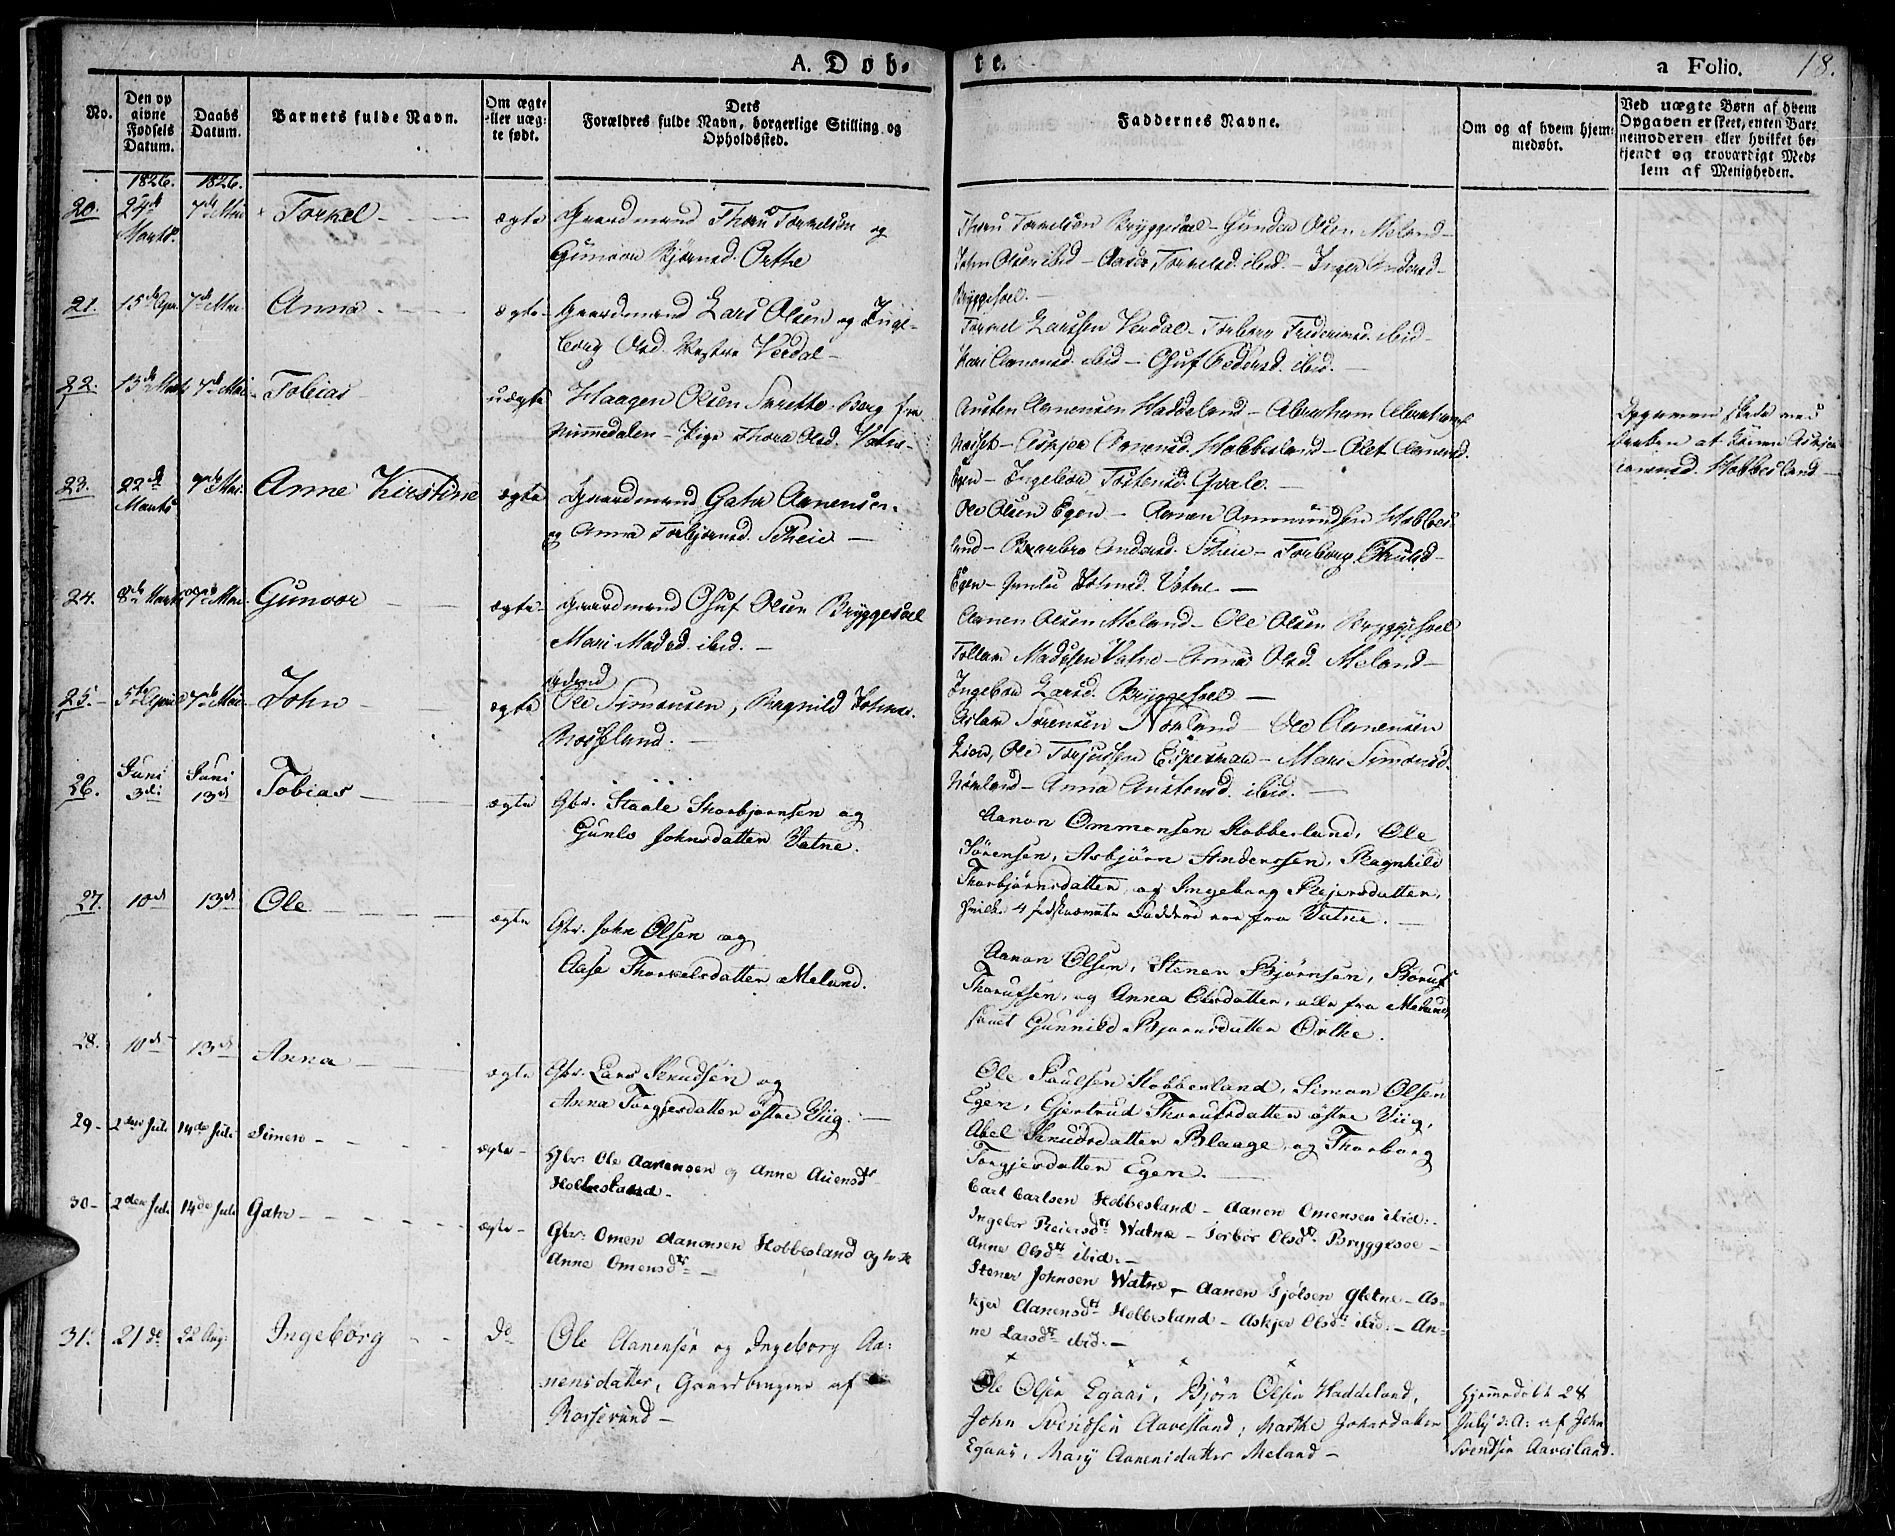 A. Døb-
te.
a Folio. 18.
No.
Den op
givne
Fødsels
Datum.
Daabs
Datum.
Barnets fulde Navn.
Om ægte
eller uæg-
te født.
Dets
Forældres fulde Navn, borgerlige Stilling og
Opholdssted.
Faddernes Navne.
Om og af hvem hjem-
medøbt.
Ved uægte Børn af hvem
Opgaven er skeet, enten Bar-
nemoderen eller hvilket be-
kjendt og troværdigt Med-
lem af Menigheden.
1826. 1826.
20. 24de Marts. 7de Mai Torkel ægte Gaardmand Thoru Torkelsen og
Gunvor Bjørnsd. Orthe
Thoru Torkelsen Bryggesael - Gunder Olsen Meland -
John Olsen ibid - Aase Torkelsd. ibid. - Inger Andersd -
Bryggesael. -
21. 15de Apr. 7de Mai. Anna ægte Gaardmand Lars Olsen og Inge-
borg Olsd. Vestre Verdal -
Torkel Larssen Verdal - Torborg ibid -
Kari Aanensd. ibid - Osuf Pedersd. ibid. -
22. 13de Marts 7de Mai Tobias uægte Haagen Olsen Berg fra
Nummedalen - Pige Thora Olsd. Vatne -
Austen Aanensen Haddeland - Abraham Abrahams
- Askjer Aanensd. Hobbesland - Olet Aanensd.
Egen - Ingebor Tostensd. Qvale. -
Opgaven skede ved
Daaben af Konen Askjer
Aanensd. Hobbesland -
23. 22de Marts 7de Mai. Anne Kirstine ægte Gaardmand Gahr Aanensen.
og Anna Torbjørnsd. Scheie -
Ole Olsen Egen - Aanen Ommundsen Hobbes-
land - Barbro Andersd. Scheie - Torborg Knudsd -
Egen - Gunlu Johnsd. Vatne. -
24. 8de Marts 7de Mai. Gunvor ægte Gaardmand Osuf Olsen Bryggesael
Mari Madsd. ibid. -
Aanen Olsen Meland - Ole Olsen Bryggesael
Tollav Madssen Vatne - Anna Olsd. Meland -
Ingebor Larsd. Bryggesael -
25. 5te April 7de Mai John ægte
Ole Simonsen, Ragnild Johnsd.
Rosseland. -
Aslav Sørensen Norland - Ole Aanensen
Lien, Ole Torjussen Espesmae - Mari Simonsd.
Norland - Anna Austensd. ibid. -
26. Juni 3di Juni 13d Tobias ægte Gbr. Staale Thorbjørnsen og
Gunlo Johnsdatter Vatne.
Aanon Ommonsen Hobbesland, Ole
Sørensen, Asbjørn Anderssen, Ragnhild
Thorbjørnsdatter, og Ingeborg Rejersdatter,
hvilke 4 sidstnævnte Faddere ere fra Vatne. -
27. 10d 13d Ole ægte Gbr. John Olsen og
Aase Thorkelsdatter Meland.
Aanon Olsen, Stener Bjørnsen,
Thorufsen, og Anna Olsdatter, alle fra Meland,
samt Gunnild Bjørnsdatter Orthe.
28. 10d 13d Anna ægte Gbr. Lars Knudsen og
Anna Torgjersdatter østre Viig. -
Ole Poulsen Hobbesland, Simon Olsen
Egen, Gjertrud Thorufsdatter østre Viig,
Abel Knudsdatter Blaage, og Thorborg
Torgjersdatter Egen. -
29 - 2den Juli 14de Juli Simen - ægte - Gbr: Ole Aanensen og Anne Auensdtr
Hobbesland -
Carl Carlsen Hobbesland - Aanon Omensen ibid: -
Ingebor Reiersdtr Watne - Torbor Olsdtr Bryggesoe -
Anne Olsdtr ibid: -
30 - 2den Juli 14de Juli Gahr - ægte - Gbr: Omen Aanonsen Hobbesland og
Anne Omensdtr -
Stener Johnsen Watne - Aanen Gletne - As-
kjer Aanensdtr Hobbesland - Askjer Olsdtr ibid: - An-
ne Larsdtr ibid: -
31. 21de 22 Aug: Ingeborg do Ole Aanensen og Ingeborg Aa-
nensdatter, Gaardbrugere af
Rosseland -
Ole Olsen Egaas, Bjørn Olsen Haddeland,
John Svendsen Aavesland, Marthe Johnsdatter
Egaas, Mary Aanensdatter Meland -
Hjemmedøbt 28
July d: A: af John
Svendsen Aavesland.